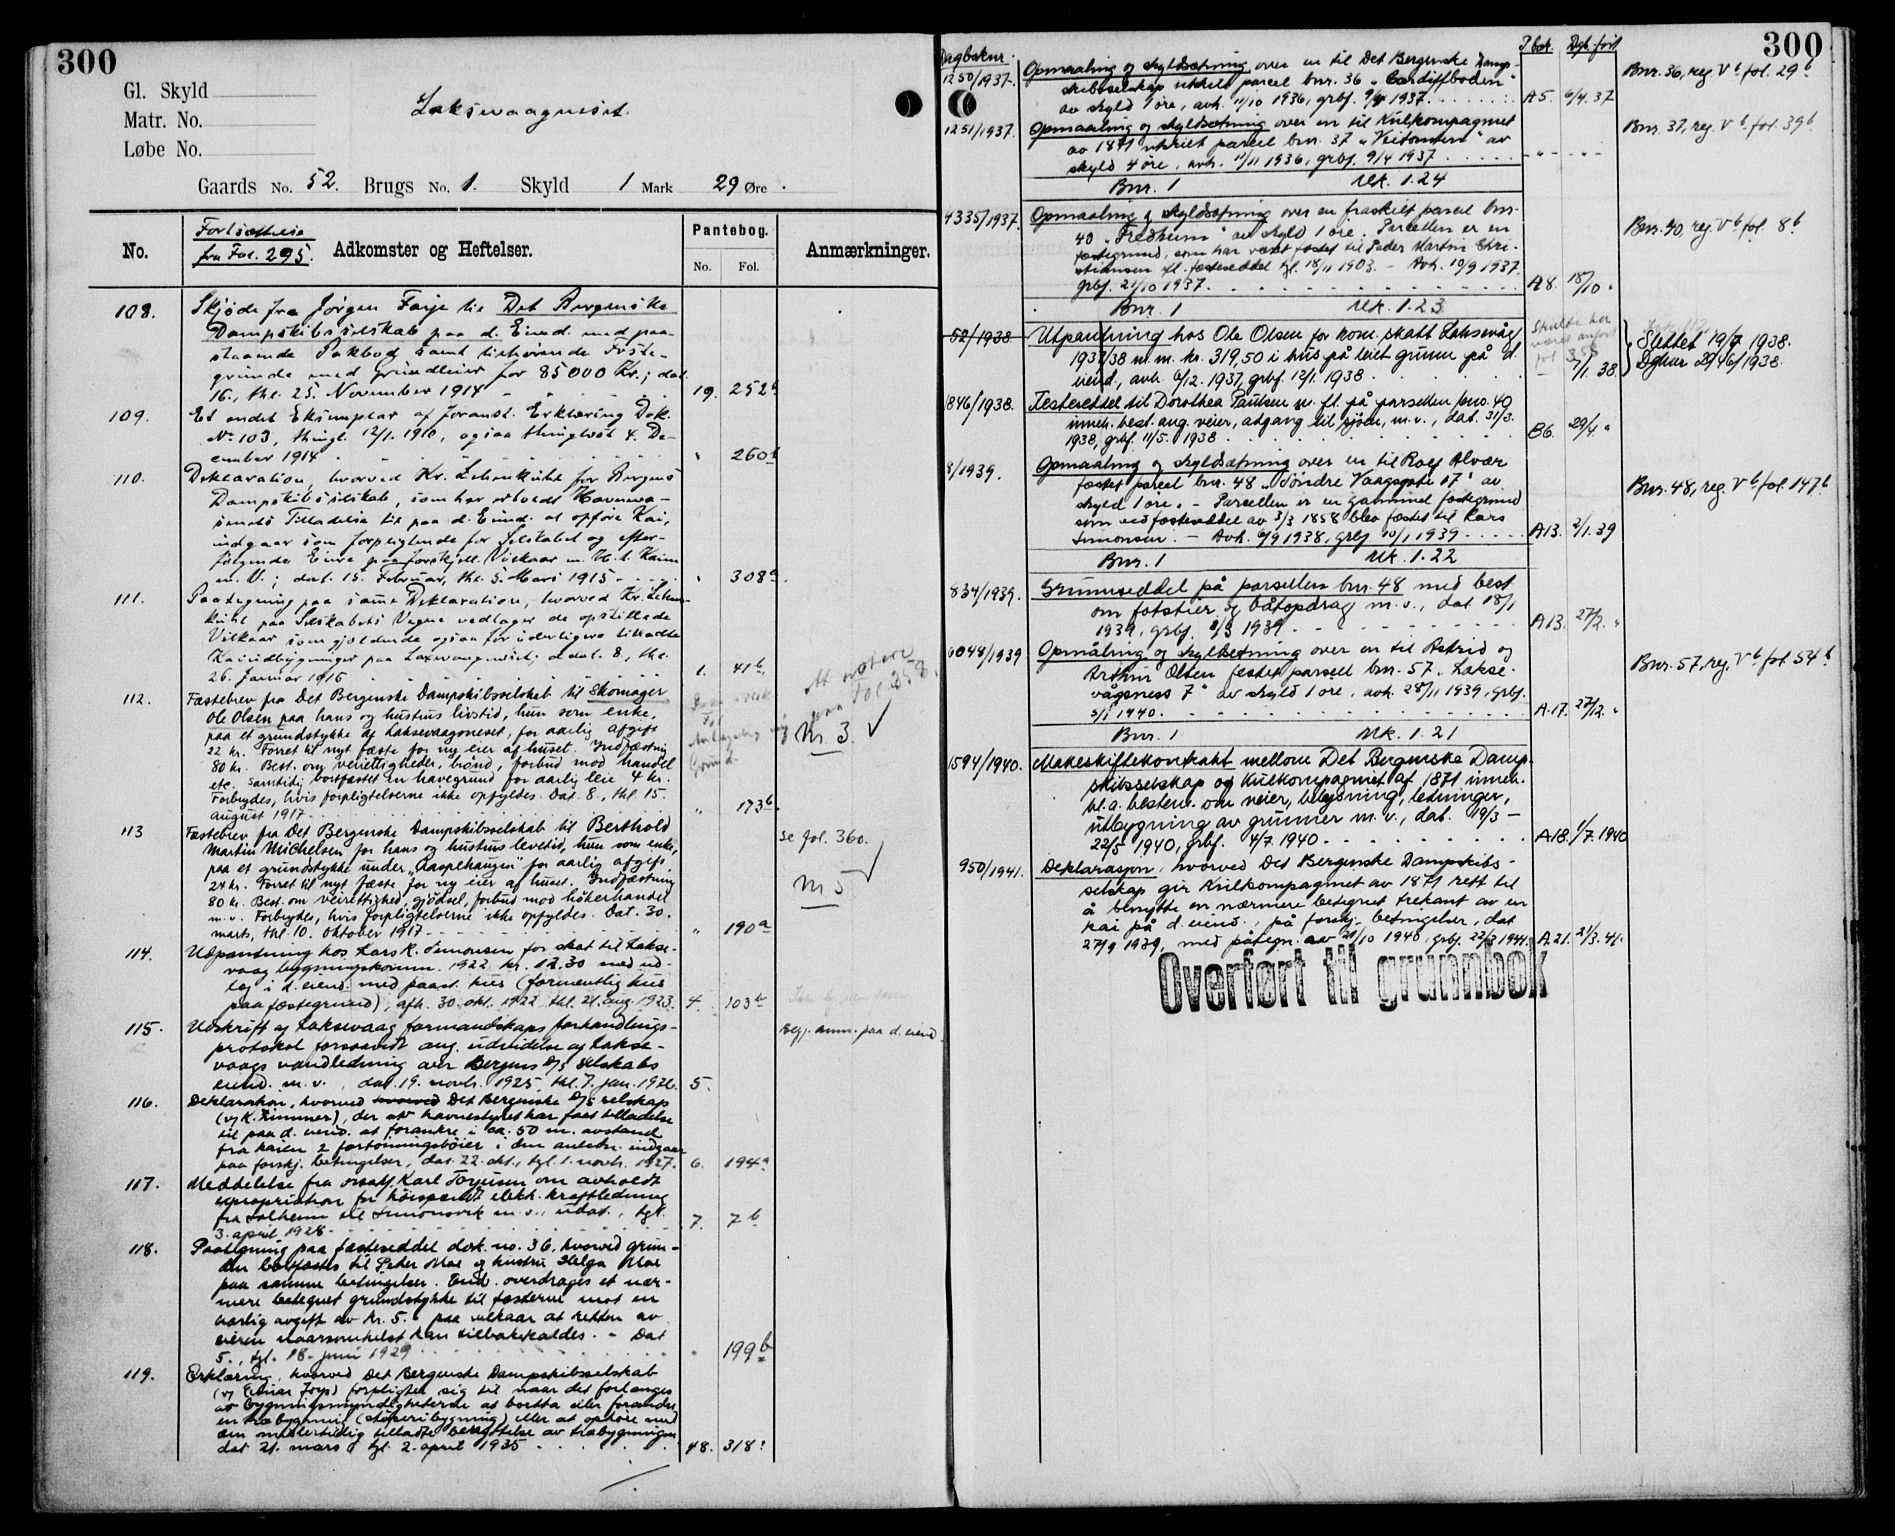 300
Gl. Skyld
Matr. No.
Løbe No.
Laksevaagneset.
Gaards No. 52. Brugs No. 1. Skyld 1 Mark 29 Øre.
No.
Fortsættelse
fra Fol. 295.
Adkomster og Heftelser.
Pantebog.
No. Fol.
Anmærkninger.
108. Skjøde fra Jörgen Faye til Det Bergenske
Dampskibsselskab paa d. Eiend. med paa-
staaende Pakbod samt tilhørende Feste-
grunde med Grundleier for 85000 Kr.; dat.
16., thl. 25. November 1914 19. 252b
109. Et andet Eksemplar af foranst. Erklæring Dok.
No 103, thingl. 12/1. 1910, ogsaa thinglæst 4. De-
cember 1914 " 260b
110. Deklaration, hvorved Kr. Lehmkuhl for Bergens
Dampskibsselskab, som har erholdt Havnevæ-
senets Tilladelse til paa d. Eiend. at opføre Kai,
indgaar som forpligtende for Selskabet og efter-
følgende Eiere paa forskjell. Vilkaar m. H. t. Kaien
m. V.; dat. 15. Februar, thl. 5. Mars 1915 " 308a
111. Paategning paa samme Deklaration, hvorved Kr. Lehm-
kuhl paa Selskabets Vegne vedtager de opstillede
Vilkaar som gjældende ogsaa for yderligere tilladte
Kaiudbygninger paa Laxevaagneset; d. dat. 8., thl.
26. Januar 1916 1. 41b
112. Fæstebrev fra Det Bergenske Dampskibsselskab til Skomager
Ole Olsen paa hans og hustrus livstid, hun som enke,
paa et grundstykke af Laksevaagneset, for aarlig afgift
22 kr. Forret til nyt fæste for ny eier af huset. Indfæstning
80 kr. Best. om veirettigheder, brønd, forbud mod handel
etc. Samtidig bortfæstet en havegrund for aarlig leie 4 kr.
Forbrydes, hvis forpligtelserne ikke opfyldes. Dat. 8., thl. 15.
august 1917 " 173b
At notere
paa Fol 258.
Nr 3 ✓
113 Fæstebrev fra Det Bergenske Dampskibsselskab til Berthold
Martin Michelsen for hans og hustrus levetid, hun som enke,
paa et grundstykke under "Gasplehaugen" for aarlig afgift
24 kr. Forret til nyt fæste for ny eier af huset. Indfæstning
80 kr. Best. om veirettighed, gjødsel, forbud mod høkerhandel
m. v. Forbrydes, hvis forpligtelserne ikke opfyldes. Dat. 30.
marts, thl. 10. oktober 1917 " 190a
se fol. 360.
Nr 5
114. Udpantning hos Lars K. Simonsen for skat til Lakse-
vaag bygningskomm. 1922 kr. 12,30 med ud-
læg i d. eiend. med paast. hus (formentlig hus
paa fæstegrund), afh. 30. okt. 1922, thl. 21. aug. 1923. 4. 103b
115. Udskrift af Laksevaag formandskaps forhandlings-
protokol forsaavidt ang. utvidelse af Lakse-
vaags vandledning over Bergens D/S Selskabs
eiend. m. v., dat. 19. novb. 1925, thl. 7. jan. 1926. 5.
Begj. anm. paa d. eiend.
116. Deklaration, hvorved Det Bergenske D/S selskap
(v/ K. Zimmer), der av havnestyret har faat tilladelse
til paa d. eiend. at forankre i ca. 50 m. avstand
fra kaien 2 fortöiningsböier i den anledn. indgaar
paa forskj. betingelser, dat. 22. okt., tgl. 1. novb. 1927. 6. 194a
117. Meddelelse fra orsaksf. Karl Torjusen om avholdt
expropriation for höispændt elekt. kraftledning
fra Solheim til Simonsvik m. v., udat., tgl.
3. april 1928 7. 7b
118. Paategning paa fæsteseddel dok. no. 36, hvorved grun-
den bortfæstes til Peder Moe og hustru Helga Moe
paa samme betingelser. End. overdrages et nær-
mere betegnet grundstykke til fæsterne mot en
aarlig avgift av kr. 5. paa vilkaar at retten av
eieren naarsomhelst kan tilbakekaldes. - Dat
5., tgl. 18. juni 1929 " 199b
119. Erklæring, hvorved Det Bergenske Dampskibsselskab
(v/ Einar Joys) forpligter sig til naar det forlanges
av bygningsmyndigheterne at bortta eller forandre
en træbygning (støperibygning) eller at ophöre med
den midlertidig tilladte benyttelse av træbygningen
dat 21. mars, tgl. 2. april 1935 48. 318a
300
Dagboknr. P.bok. Dgb.ført
1250/1937. Opmaaling og skyldsætning over en til Det Bergenske Damp-
skibsselskap utskilt parcel bnr. 36 "Cardiffboden"
av skyld 1 øre, avh. 11/10 1936, grbf. 9/4 1937. A5. 6/4. 37
Bnr. 36, reg. Vb fol. 29b
1251/1937. Opmaaling og skyldsætning over en til Kulkompagniet
av 1871 utskilt parcel bnr. 37 "Veitomten" av
skyld 4 øre, avh. 11/11 1936, grbf. 9/4 1937 - " - - " -
Bnr. 37, reg. Vb. fol. 39b
Bnr. 1 Mk. 1.24
4335/1937. Opmaaling og skyldsætning over en fraskilt parcel bnr.
40 "Fredheim" av skyld 1 øre. Parcellen er en
fæstegrund, som har været fæstet til Peder Martin Chri-
stiansen ifl. fæsteseddel tgl. 18/11 1903. - Avh. 10/9 1937.
grbf. 21/10 1937. A8. 18/10 "
Bnr. 40 reg. Vb fol. 8b
Bnr. 1 Mk. 1.23
52/1938 Utpantning hos Ole Olsen for kom. skatt Laksevåg
1937/38 m.m. kr. 319,50 i hus på leiet grunn på d.
eiend., avh. 6/12. 1937, grbf. 12/1. 1938
Skulde ha
været anført
fol 358
/1. 38.
Slettet 19/7 1938.
Dgbnr 2946/1938.
1846/1938. Festeseddel til Dorothea Paulsen m. fl. på parsellen bno. 40
inneh. best. ang. veier, adgang til sjøen, m. v., dat. 31/3.
1938, grbf. 11/5. 1938 B6. 29/4. "
8/1939. Opmaaling og skyldsætning over en til Rolf Alvær
fæstet parcel bnr. 48 "Söndre Vaagsgate 17" av
skyld 1 øre. - Parcellen er en gammel fæstegrund
som ved fæsteseddel av 3/3 1858 blev fæstet til Lars
Simonsen. - Avh. 6/9 1938, grbf 10/1 1939 A13. 2/1. 39
Bnr. 48, reg. Vb fol. 147b
Bnr. 1 Mk. 1.22
834/1939. Grunnseddel på parsellen bnr. 48 med best
om fotstier og båtopdrag m. v., dat 18/1
1939, grbf. 2/3 1939 A13. 27/2. "
6048/1939 Opmåling og skyldsetning over en til Astrid og
Arthur Olsen festet parsell bnr. 57 "Lakse-
vågsness 7" av skyld 1 øre, avh. 28/11 1939, grbf.
3/1 1940. A.17. 27/12. "
Bnr. 57, reg. Vb fol 54b
Bnr. 1 Mk. 1.21
1594/1940. Makeskiftekontrakt mellem Det Bergenske Damp-
skibsselskap og Kulkompagniet af 1871 inneh.
bl. a. bestem. om veier, belysning, ledninger,
utbygning av grunner m. v., dat. 19/3 -
22/5 1940, grbf. 4/7. 1940 A18. 1/7. 1940
950/1941. Deklarasjon, hvorved Det Bergenske Dampskibs-
selskap gir Kulkompagniet av 1871 rett til
å benytte en nærmere betegnet trekant av en
kai på d. eiend., på forskj. betingelser, dat
27/9 1939, med påtegn. av 21/10 1940, grbf. 22/3 1941. A.21. 21/3. 41.
Overført til grunnbok